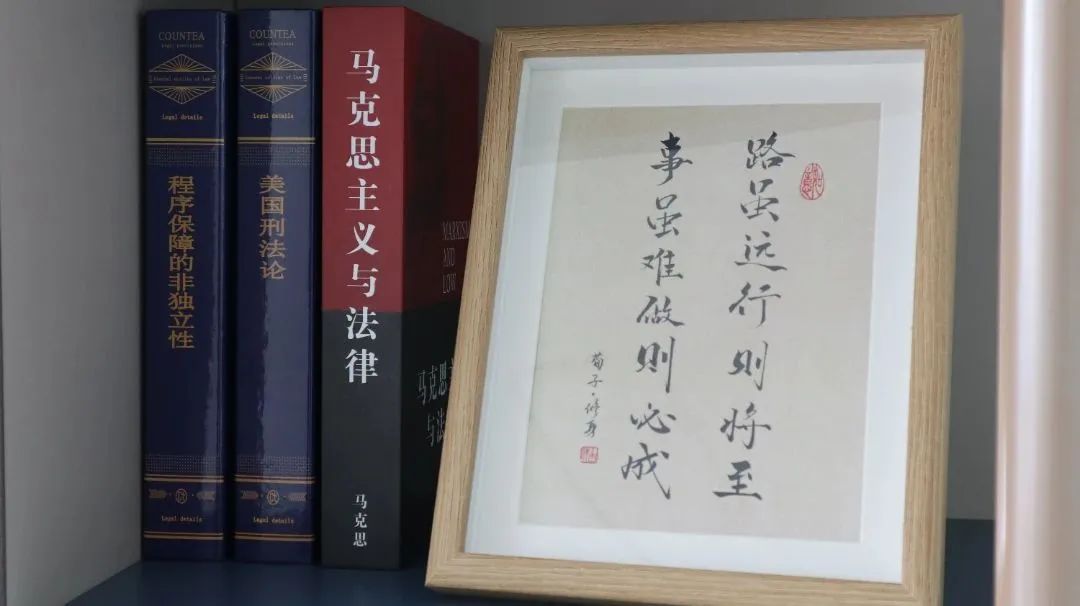 COUNTEA
Legal provisions
Legal details
程序保障的非独立性
Legal details
COUNTEA
Legal provisions
Legal details
美国刑法论
Legal details
马克思主义与法律
马克思
MARXISM
AND
LOW
马克思主
与法
路虽远行则将至
事虽难做则必成
荀子·修身